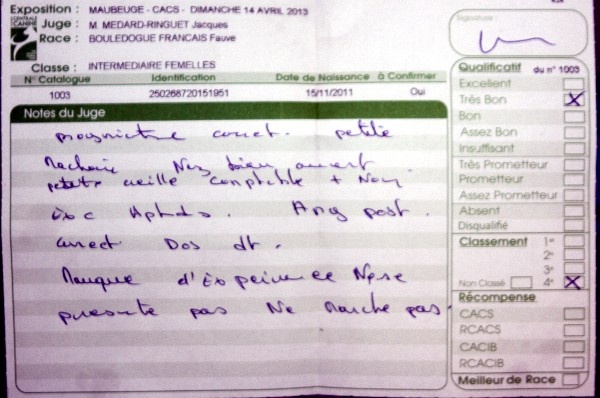 Exposition : MAUBEUGE - CACS - DIMANCHE 14 AVRIL 2013
Juge : M. MEDARD-RINGUET Jacques
Race : BOULEDOGUE FRANCAIS Fauve
Classe : INTERMEDIAIRE FEMELLES
CENTRALE CANINE
Signature :
N° Catalogue Identification Date de Naissance à Confirmer
1003 250268720151951 15/11/2011 Oui
Notes du Juge
correct. petite
Nez bien ouvert
+ Noir
Ang post.
correct Dos dt.
Manque d'Experience Ne se
presente pas Ne marche pas
Qualificatif du n° 1003
Excellent
Très Bon X
Bon
Assez Bon
Insuffisant
Très Prometteur
Prometteur
Assez Prometteur
Absent
Disqualifié
Classement 1e
2e
3e
Non Classé 4e X
Récompense
CACS
RCACS
CACIB
RCACIB
Meilleur de Race